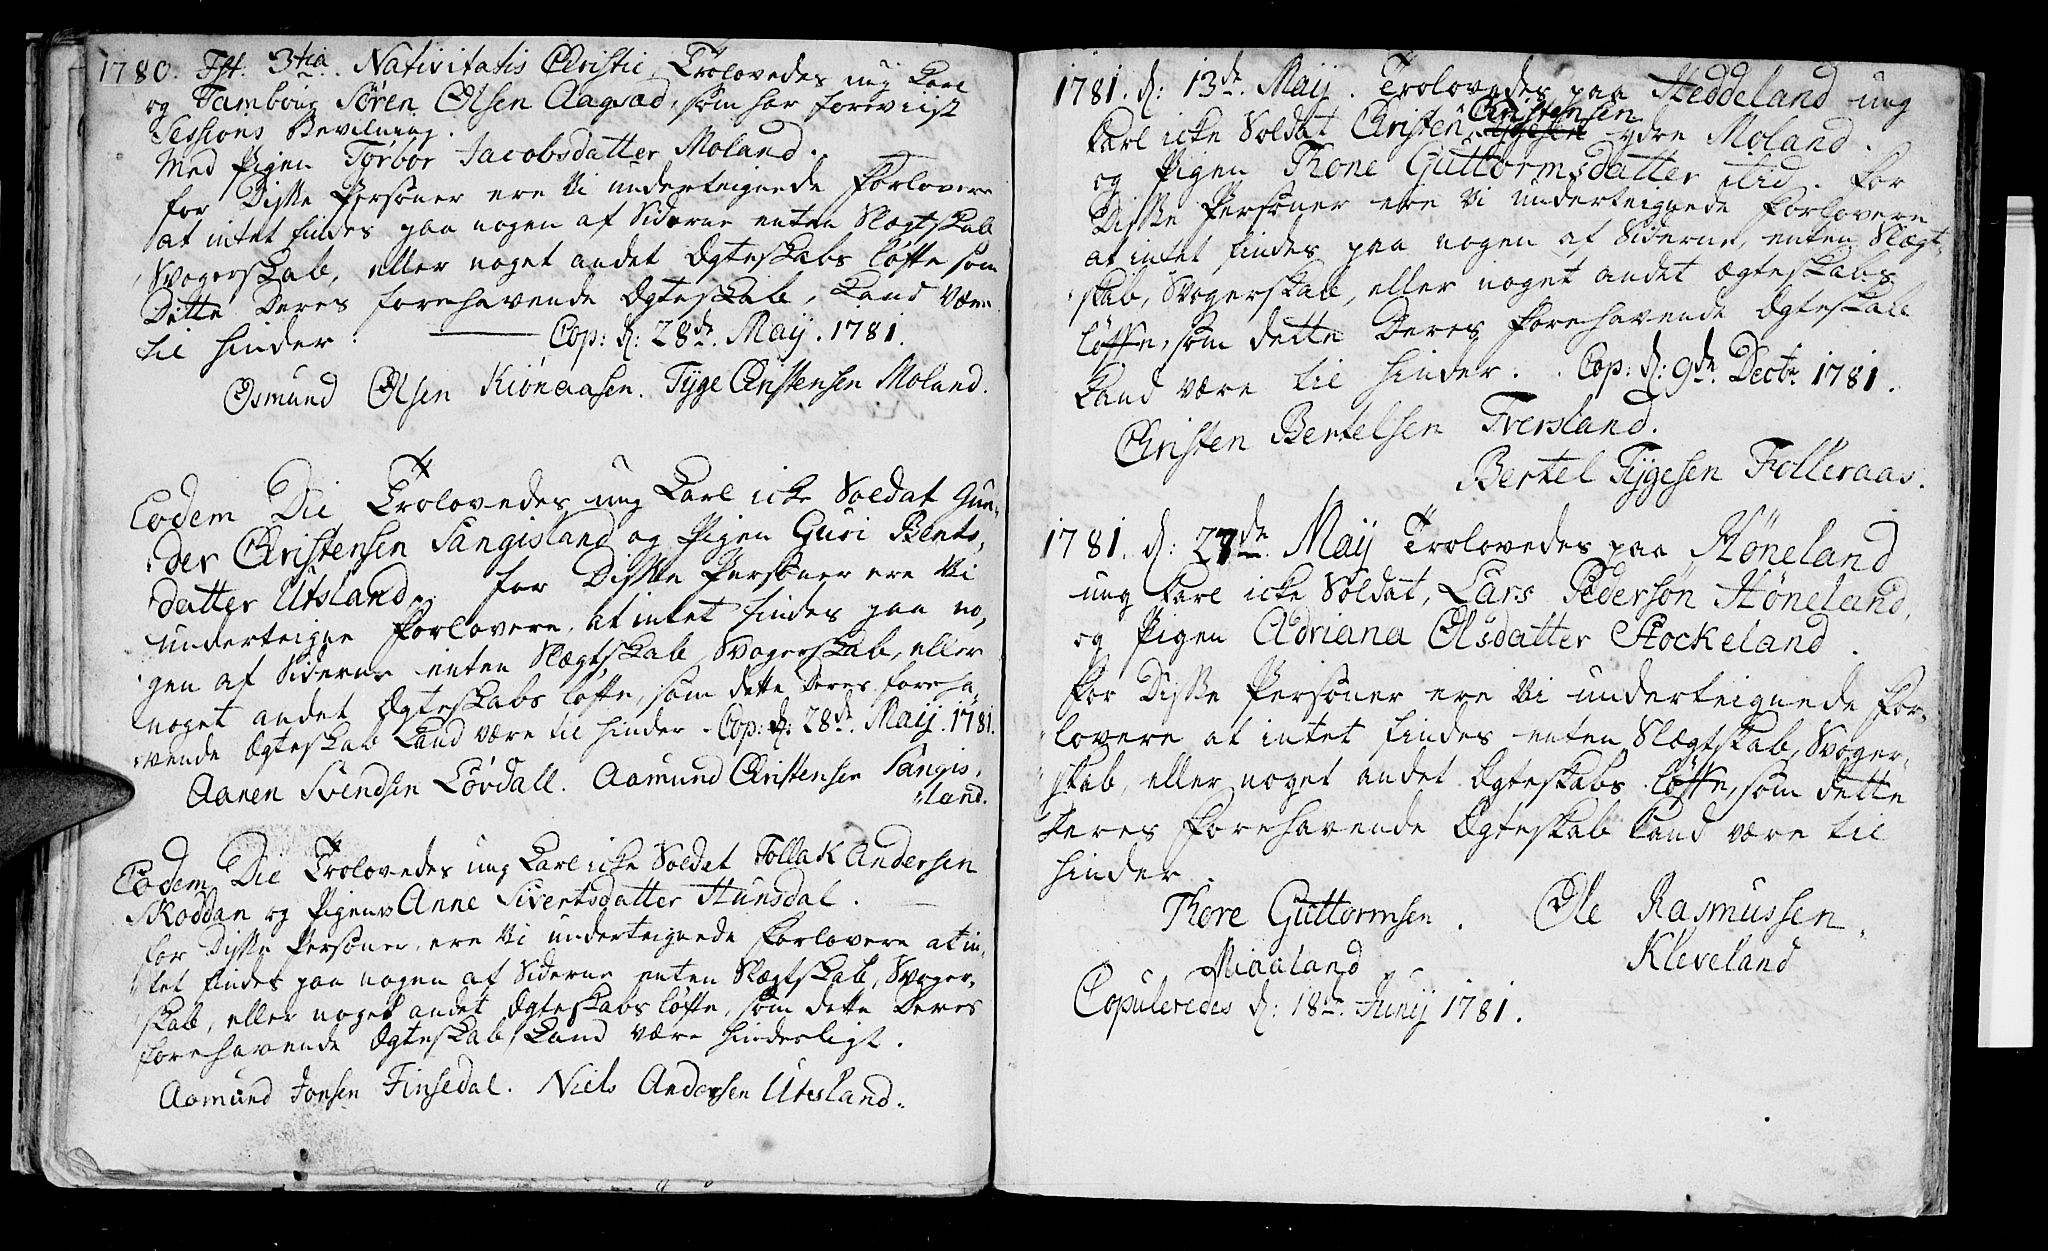 1780. Fst. 3tia Nativitatis Christie, Trolovedes ung Karl
og Tambour Søren Olsen Aagsad, som har foreviist
Sessions Bevilning.
Med Pigen Tørbor Jacobsdatter Moland.
for Disse Personer ere Vi underteignede Forlovere
at intet findes paa nogen af Siderne enten Slegtskab
Svogerskab, eller noget andet Egteskabs løfte som
Dette Deres forehavende Egteskab, Kand Være
til hinder. Cop: d: 28de Maij. 1781.
Osmund Olsen Kiønaasen. Tyge Christensen Moland.
Eodem Die Trolovedes ung Karl icke Soldat Gun-
der Christensen Sangisland og Pigen Guri Bents-
datter Utsland. for Disse Personer ere Vi
underteigne Forlovere, at intet findes paa no-
gen af Siderne enten Slægtskab Svogerskab, eller
noget andet Egteskabs løfte, som dette Deres foreha-
vende Egteskab Kand være til hinder. Cop: d: 28de Maij. 1781.
Aanen Svendsen Lövdall. Aamund Christensen Sangis-
land.
Eodem Die Trolovedes ung Karl icke Soldat Tollak Andersen
Skoddan og Pigen Anne Sivertsdatter Stunsdal.
for Disse Personer ere Vi underteignede Forlovere at in-
tet findes paa nogen af Siderne enten Slægtskab, Svoger-
skab, eller noget andet Egteskabs løfte, som dette Deres
forehavende Egteskab Kand være hinderligt.
Aamund Jonsen Finsedal. Niels Andersen Utesland.
1781. d: 13de Maij. Trolovedes paa Heddeland ung
Karl icke Soldat Christen Christensen ydre Moland.
og Pigen Thone Guttormsdatter itid. for
Disse Personer ere Vi underteignede Forlovere
at intet findes paa nogen af Siderne, enten Slægt-
skab, Svogerskab, eller noget andet Ægteskabs
løffte, som dette Deres forehavende Egteskab
Kand være til hinder. Cop: d: 9de Decbr 1781.
Christen Bertelsen Tversland.
Bertel Tygesen Folleraas.
1781. d: 27de Maij Trolovedes paa Høneland
ung Karl icke Soldat, Lars Pedersøn Høneland,
og Pigen Adriana Olsdatter Stockeland.
for Disse Personer ere Vi underteignede For-
lovere at intet findes enten Slægtskab, Svoger-
skab, eller noget andet Egteskabs løffte, som dette
Deres forehavende Egteskab Kand være til
hinder.
Thore Guttormsen. Ole Rasmussen
Miaaland Kleveland
Copuleredes d: 18de Junij 1781.